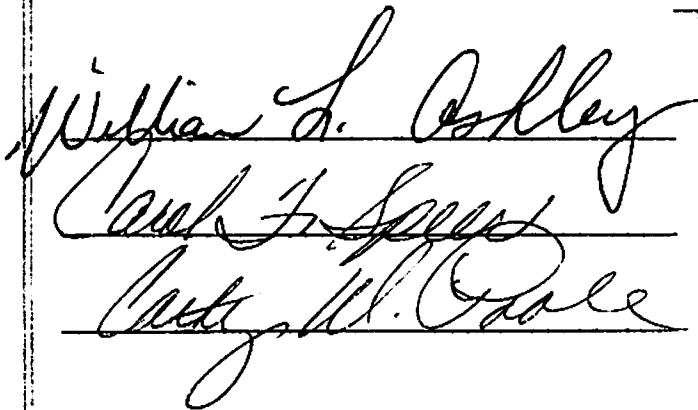 William L. Ashley
Carol F. Speers
Cathy W. Poole